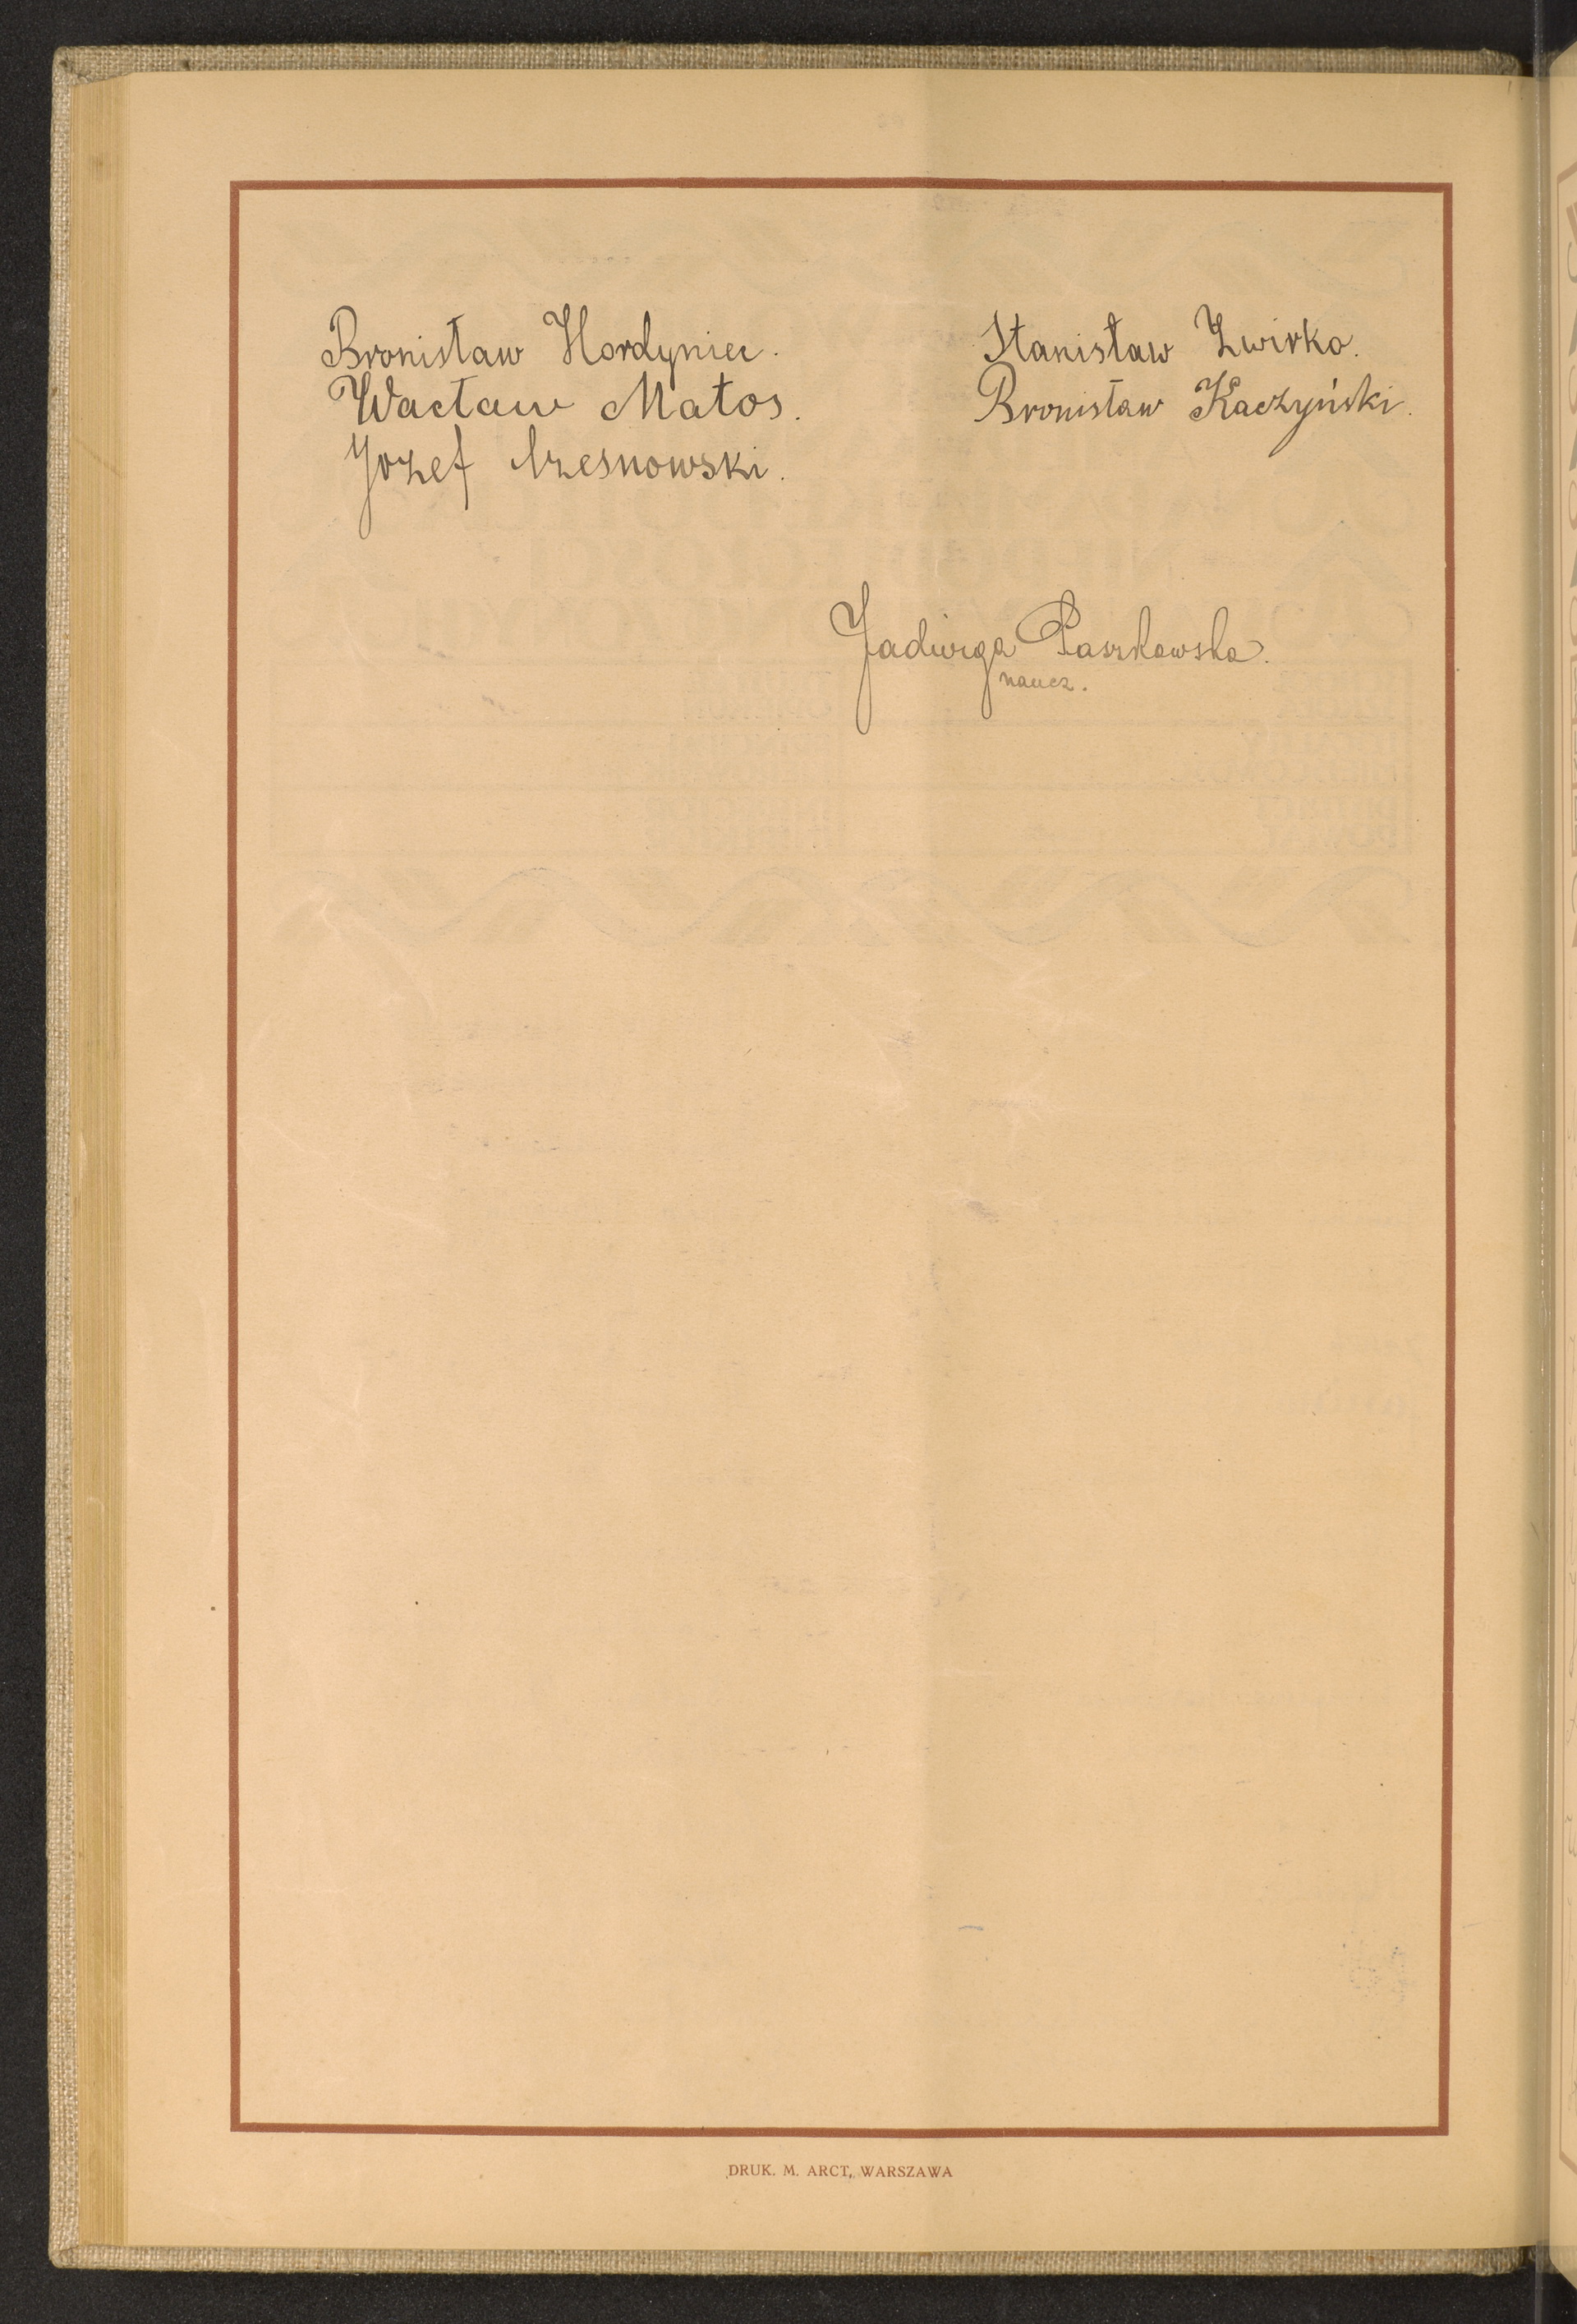 Bronisław Hordyniec.
Wacław Małos.
Jozef
Stanisław Zwirko.
Bronisław Kaczyński.
Jadwiga Paszkowska.
naucz.
DRUK. M. ARCT, WARSZAWA